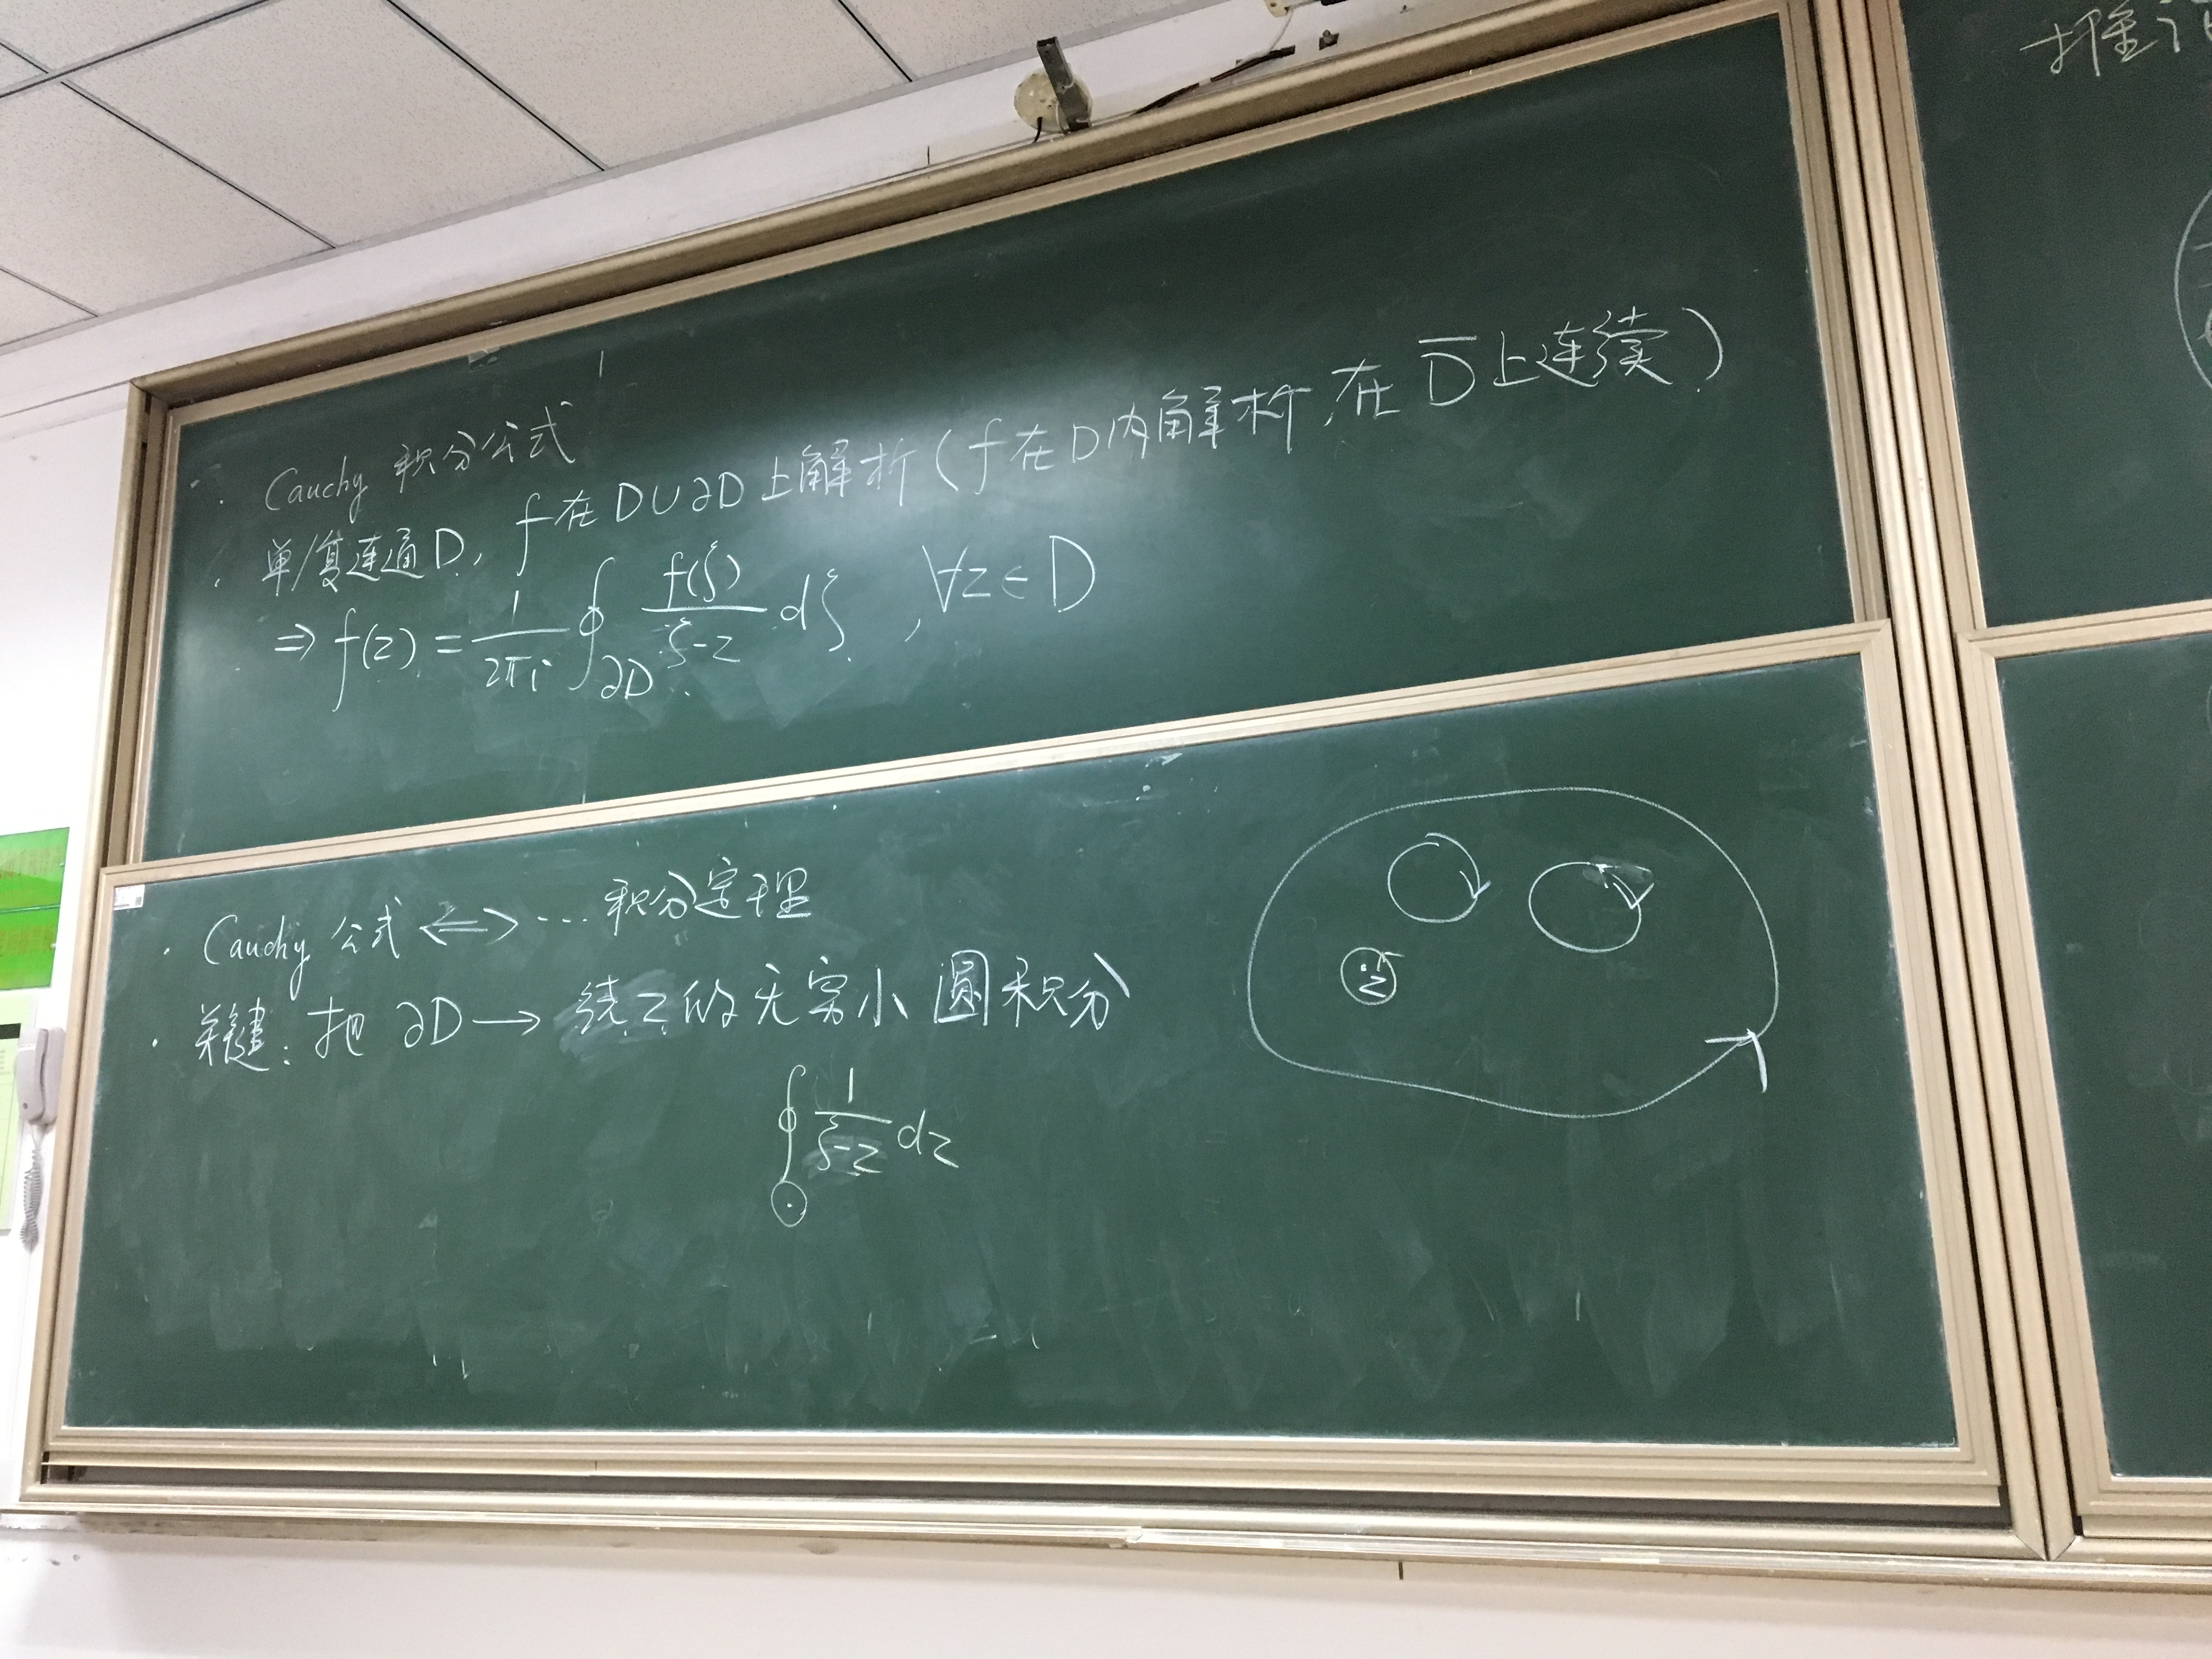 · Cauchy 积分公式
· 单/复连通D, f在D∪∂D上解析(f在D内解析,在D̅上连续)
⇒ f(z) = \frac{1}{2πi} ∮_{∂D} \frac{f(ζ)}{ζ-z} dζ , ∀z∈D
· Cauchy 公式 ⟺ ... 积分定理
· 关键: 把 ∂D → 绕z的无穷小圆积分
∮ \frac{1}{ζ-z} dz
z